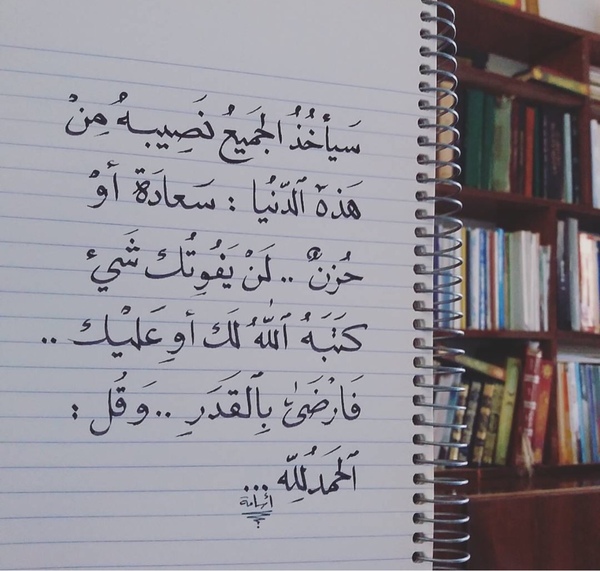 سَيأْخُذُ الجَميعُ نَصِيبهُ مِنْ
هَذهْ ٱلدّنْيا : سَعادَة أوْ
حُزنٌ .. لَنْ يَفُوتَك شَيء
كَتَبَهُ ٱللّٰهُ لَكَ أو عَليْك ..
فَارْضَىٰ بِٱلقَدَرِ .. وَقُل :
ٱلحَمدُللّه ...
أسامة